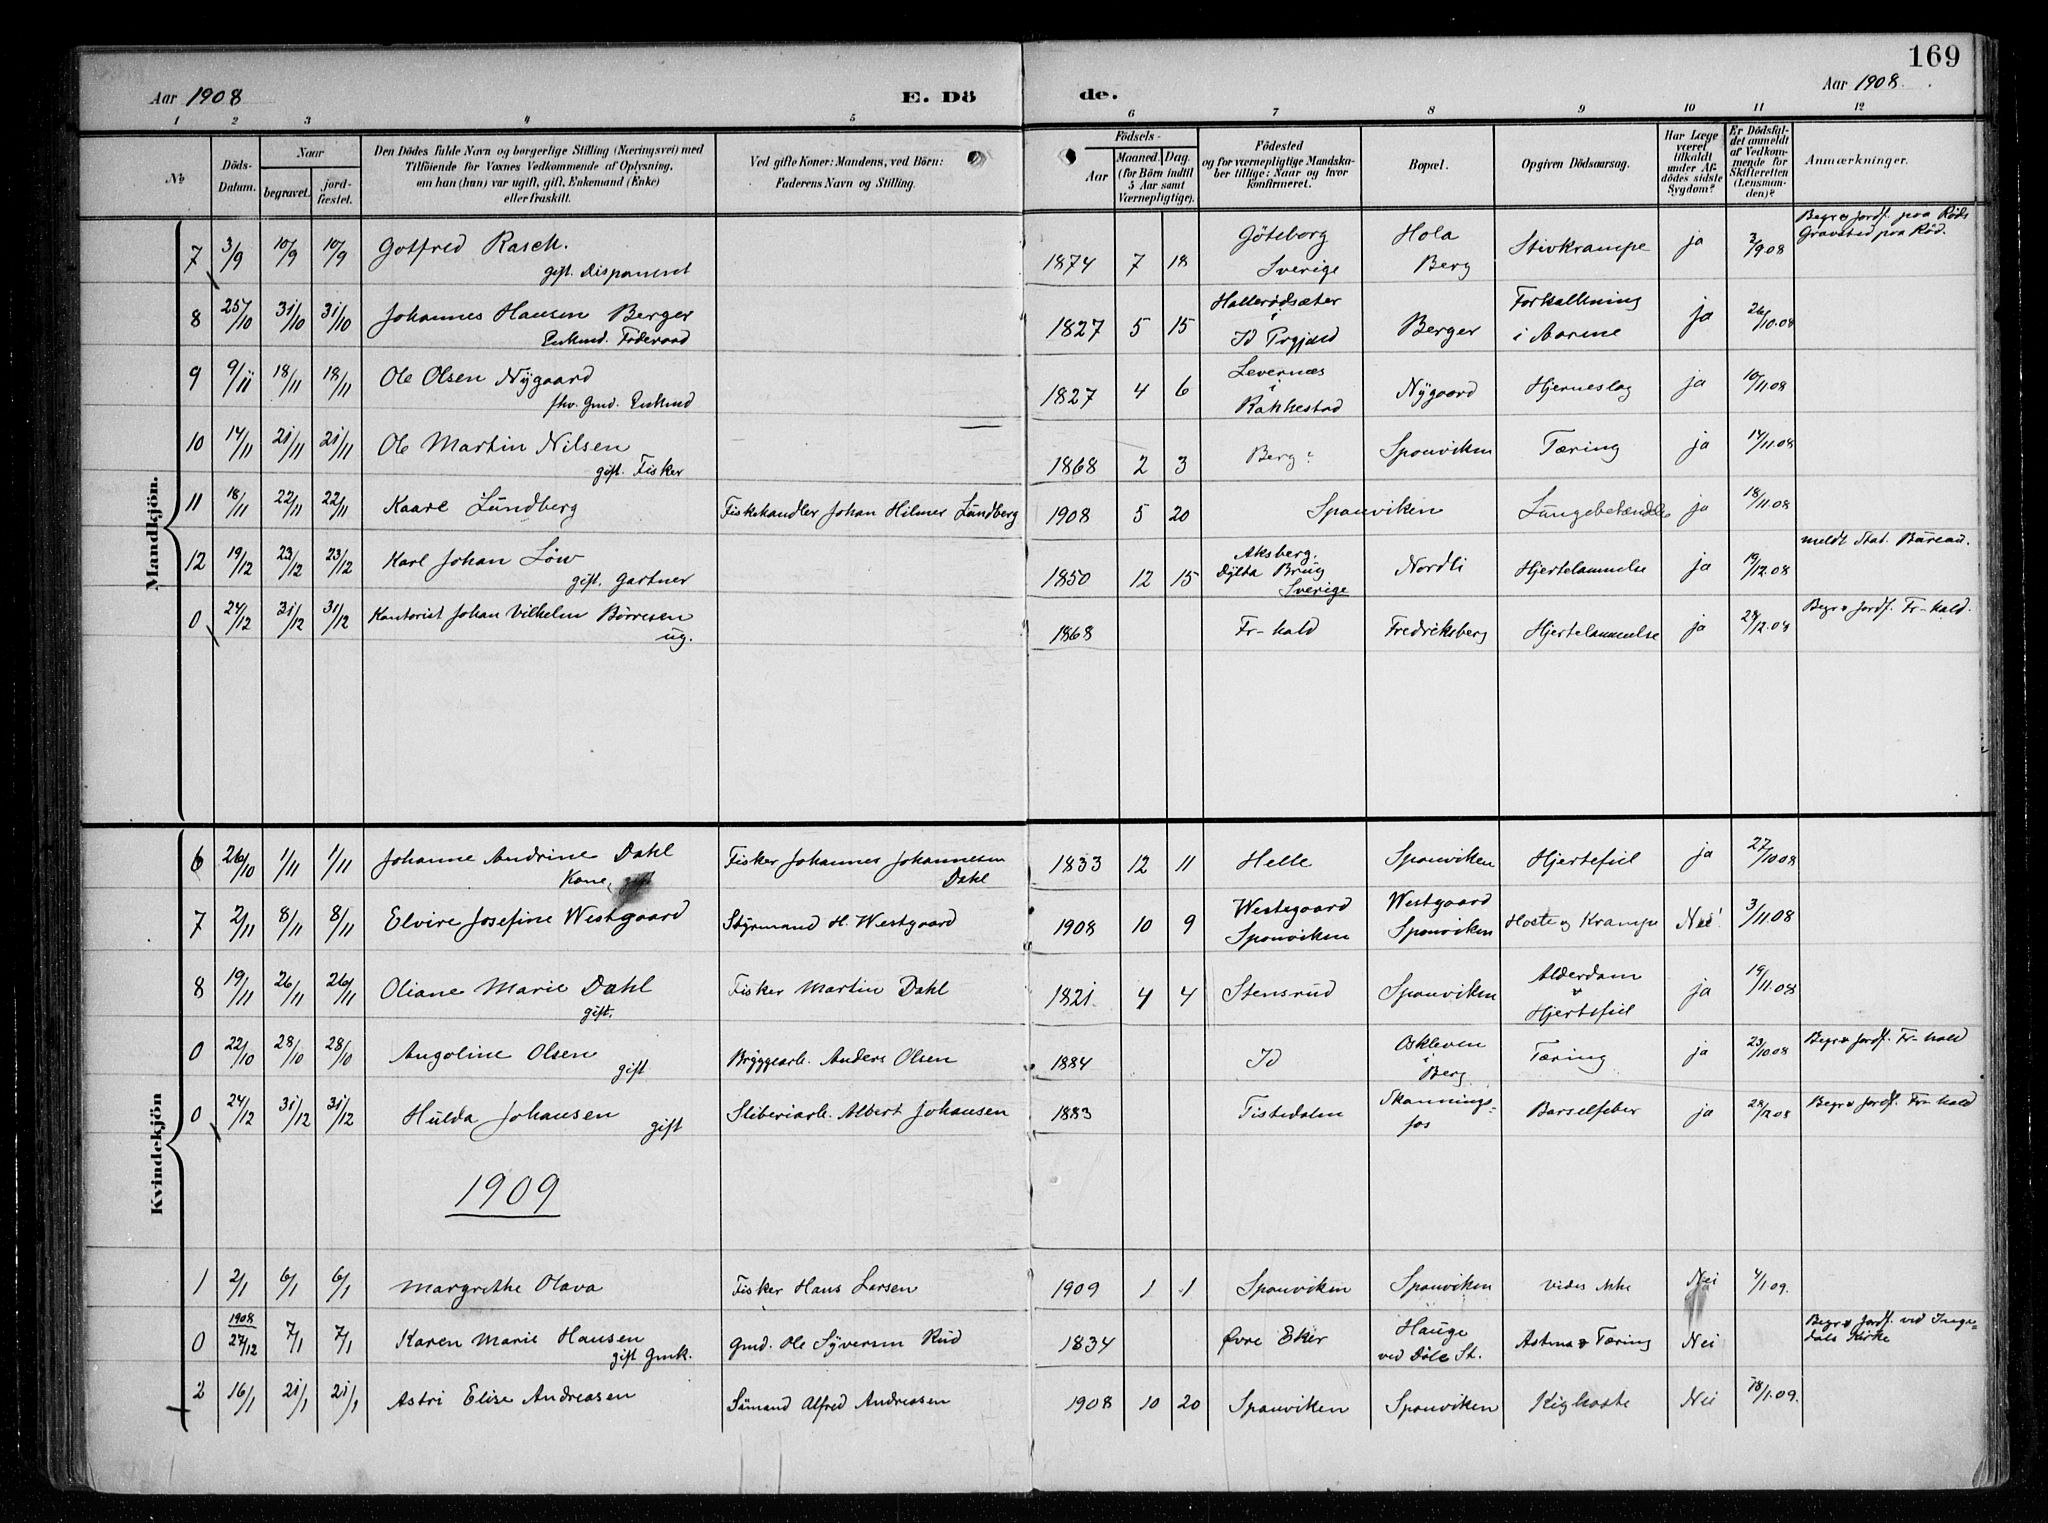 169
Aar 1908 E. Dö de. Aar 1908
1 2 3 4 5 6 7 8 9 10 11 12
№ Döds-Datum. Naar begravet. jord-fæstet. Den Dödes fulde Navn og borgerlige Stilling (Næringsvei) med Tilföiende for Voxnes Vedkommende af Oplysning, om han (hun) var ugift, gift, Enkemand (Enke) eller fraskilt. Ved gifte Koner: Mandens, ved Börn: Faderens Navn og Stilling. Födsels- Aar Maaned. Dag. (for Börn indtil 5 Aar samt Værnepligtige). Födested og for værnepligtige Mandskaber tillige: Naar og hvor konfirmeret. Bopæl. Opgiven Dödsaarsag. Har Læge været tilkaldt under Afdödes sidste Sygdom? Er Dödsfaldet anmeldt af Vedkommende for Skifteretten (Lensmanden)? Anmærkninger.
Mandkjön.
7 3/9 10/9 10/9 Gotfred Rasch. gift. Disponent 1874 7 18 Göteborg Sverige Hola Berg Stivkrampe ja 3/9 08 Begr & Jordf. paa Röds Gravsted paa Rød.
8 25/10 31/10 31/10 Johannes Hansen Berger Enkmd. Föderaad 1827 5 15 Hallerødsæter i Id Prgjæld Berger Forkalkning i Aarene ja 26/10.08
9 9/11 18/11 18/11 Ole Olsen Nygaard fhv. Gmd. Enkmd 1827 4 6 Levernæs i Rakkestad Nygaard Hjerneslag ja 10/11.08
10 14/11 21/11 21/11 Ole Martin Nilsen gift. Fisker 1868 2 3 Berg Sponviken Tæring ja 14/11.08
11 18/11 22/11 22/11 Kaarl Lundberg Fiskehandler Johan Hilmer Lundberg 1908 5 20 Sponviken Lungebetændelse ja 18/11.08
12 19/12 23/12 23/12 Karl Johan Löw gift. Gartner 1850 12 15 Aksberg. Dylta Brug Sverige Nordli Hjertelammelse ja 19/12.08 meldt Stat. Bureau.
0 24/12 31/12 31/12 Kontorist Johan Vilhelm Börresen ug. 1868 Fr-hald Fredriksberg Hjertelammelse ja 28/12.08 Begr & Jordf. Fr-hald.
Kvindekjön
6 26/10 1/11 1/11 Johanne Andrine Dahl Kone, gift Fisker Johannes Johannesen Dahl 1833 12 11 Helle Sponviken Hjertefeil ja 27/10 08
7 2/11 8/11 8/11 Elvire Josefine Westgaard Styrmand H. Westgaard 1908 10 9 Westegaard Sponviken Westgaard Sponviken Hoste og Krampe Nei 3/11.08
8 19/11 26/11 26/11 Oliane Marie Dahl gift. Fisker Martin Dahl 1821. 4 4 Stensrud Sponviken Alderdom & Hjertefeil ja 19/11.08
0 22/10 28/10 28/10 Angoline Olsen gift Bryggearb. Anders Olsen 1884 Id Oskleven i Berg Tæring ja 23/10 08 Begr & Jordf. Fr-hald
0 24/12 31/12 31/12 Hulda Johansen gift Sliberiarb. Albert Johansen 1883 Tistedalen Skonningsfos Barselfeber ja 28/12 08 Begr & Jordf. Fr-hald
1909
1 2/1 6/1 6/1 Margrethe Olava Fisker Hans Larsen 1909 1 1 Sponviken Sponviken vides ikke Nei 4/1 09.
0 1908 27/12 7/1 7/1 Karen Marie Hansen gift Gmk. Gmd. Ole Syversen Rud 1834 Øvre Eker Hauge ved Döle St. Astma & Tæring Nei Begr & Jordf. ved Ingedals Kirke
2 16/1 21/1 21/1 Astri Elise Andreasen Sömand Alfred Andreasen 1908 10 20 Sponviken Sponviken Kighoste Nei 18/1.09.